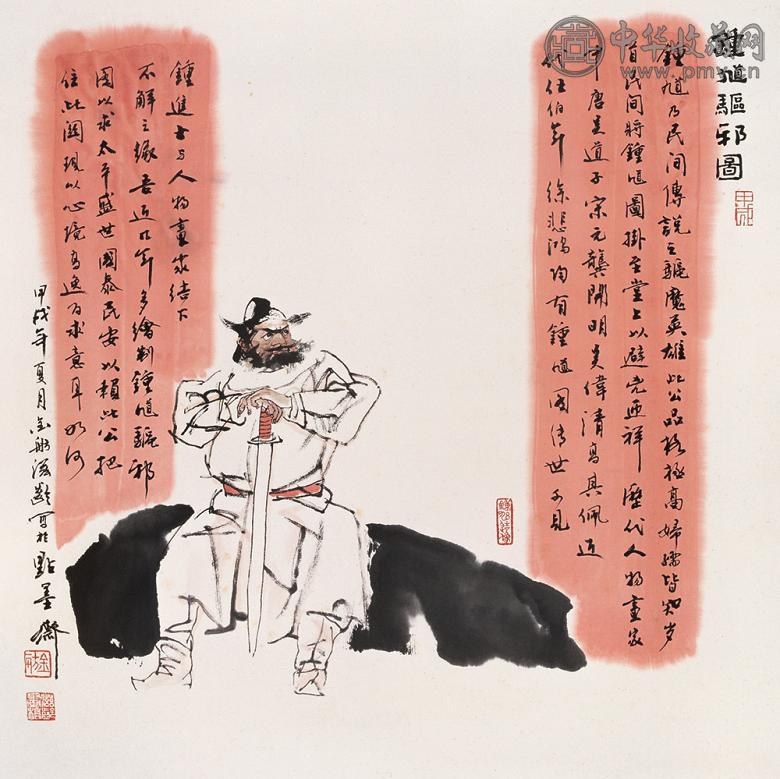 中华收藏网
www.pmv.cn
鍾馗驅邪圖
甲戌
鍾馗乃民間傳說之驅魔英雄此公品格極高婦孺皆知岁
首民間將鍾馗圖掛至堂上以避兇迎祥歷代人物畫家
中唐吴道子宋元龔開明吴偉清高其佩近
代任伯年徐悲鴻均有鍾馗圖傳世可見
鍾進士与人物畫家结下
不解之緣吾近几年多繪制鍾馗驅邪
圖以求太平盛世國泰民安以賴此公把
住此關現以心境高逸为求意耳如何
甲戌年夏月 寫於點墨齋